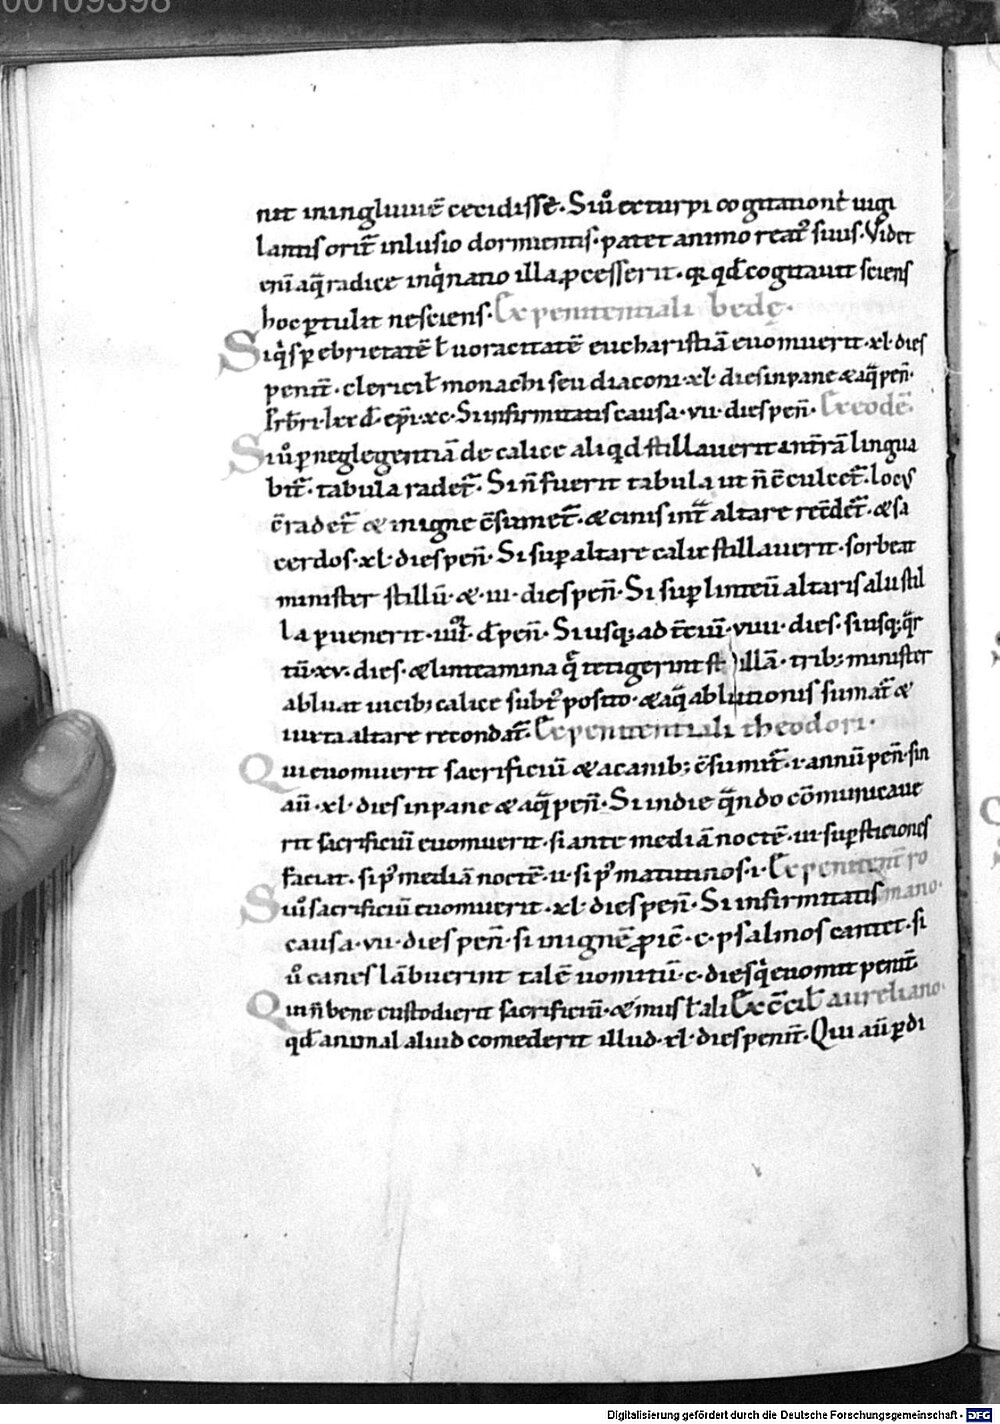 00109398
nit in ingluuiē cecidisse. Siů ex turpi cogitationē uigi
lantis orit̄ inlusio dormientis. patet animo reat᷒ suus. Videt
eni a q̄ radice inq̇natio illa ꝓcesserit. q̄ qđ cogitauit sciens
hoc ꝑtulit nesciens. Ex penitentiali bedę.
Siq̇s ꝑ ebrietatē ł uoracitatē eucharistiā euomuerit. xl. dies
penit̄. clerici ł monachi seu diaconi. xl. dies in pane & aq̄ peñ.
Prb̄ri. lxx đ. ep̄i. xc. Si infirmitatis causa. vii. dies peñ. Ex eodē.
Siů ꝑ neglegentiā de calice aliqđ stillauerit in t̄rā lingua
bit̄. tabula radet̄. Si ñ fuerit tabula ut ñ c̄culcet̄. locus
c̄radet̄ & in igne c̄sumet̄. & cinis int̄ altare rec̄det̄. & sa
cerdos. xl. dies peñ. Si suꝑ altare calix stillauerit. sorbeat
minister stillū. & .iii. dies peñ. Si suꝑ linteū altaris alu stil
la ꝑuenerit. iiii. đ peñ. Si usq; ad t̄ciū. viiii. dies. si usq; q̄r
tū. xv. dies. & linteamina q̄ tetigerint stillā. trib; minister
abluat uicib; calice subt᷒ posito. & aq̄ ablutionis sumat̄ &
iuxta altare recondat̄. Ex penitentiali theodori.
Qui euomuerit sacrificiū & a canib; c̄sumit̄. i. annū peñ. sin
aū. xl. dies in pane & aq̄ peñ. Si in die q̄ndo cōmunicaue
rit sacrificiū euomuerit. si ante mediā noctē. iii. suꝑsticiones
faciat. si p᷒ mediā noctē. ii. si p᷒ matutinos. i. Ex penitent̄ ro
Siů sacrificiū euomuerit. xl. dies peñ. Si infirmitatis mano.
causa. vii. dies peñ. si in ignē ꝓiec̄. c. psalmos cantet. si
ů canes lābuerint talē uomitū. c. dies q̇ euomit penit̄
Qui ñ bene custodierit sacrificiū. & mus ł ali Ex c̄cił aureliano.
qđ animal aliud comederit illud. xl. dies penit̄. Qui aū ꝑdi
Digitalisierung gefördert durch die Deutsche Forschungsgemeinschaft - DFG